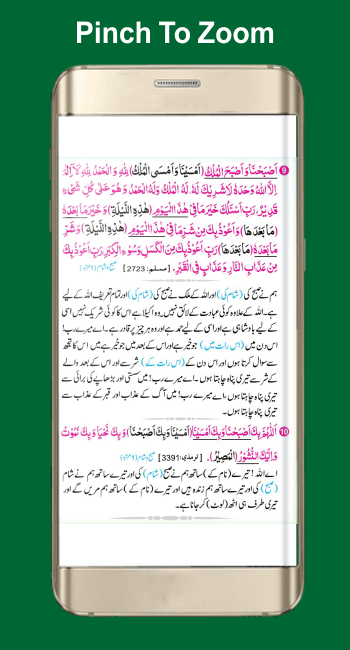 Pinch To Zoom
9 اَصْبَحْنَا وَ اَصْبَحَ الْمُلْكُ (اَمْسَيْنَا وَ اَمْسَى الْمُلْكُ) لِلّٰهِ وَ الْحَمْدُ لِلّٰهِ لَآ اِلٰهَ
اِلَّا اللّٰهُ وَحْدَهٗ لَا شَرِيْكَ لَهٗ، لَهُ الْمُلْكُ وَلَهُ الْحَمْدُ وَهُوَ عَلٰى كُلِّ شَيْءٍ
قَدِيْرٌ، رَبِّ اَسْئَلُكَ خَيْرَ مَا فِيْ هٰذَا الْيَوْمِ (هٰذِهِ اللَّيْلَةِ) وَ خَيْرَ مَا بَعْدَهٗ
(مَا بَعْدَهَا) وَ اَعُوْذُ بِكَ مِنْ شَرِّ مَا فِيْ هٰذَا الْيَوْمِ (هٰذِهِ اللَّيْلَةِ) وَ شَرِّ
مَا بَعْدَهٗ (مَا بَعْدَهَا) رَبِّ اَعُوْذُ بِكَ مِنَ الْكَسَلِ وَسُوْءِ الْكِبَرِ رَبِّ اَعُوْذُ بِكَ
مِنْ عَذَابٍ فِي النَّارِ وَ عَذَابٍ فِي الْقَبْرِ. [مسلم: 2723]
ہم نے صبح کی (شام کی) اور اللہ کے ملک نے صبح کی (شام کی) اور تمام تعریف اللہ کے لیے
ہے۔ اللہ کے علاوہ کوئی عبادت کے لائق نہیں۔ وہ اکیلا ہے اس کا کوئی شریک نہیں اسی
کے لیے بادشاہی ہے اور اسی کے لیے حمد ہے اور وہ ہر چیز پر قادر ہے۔ اے میرے رب!
اس دن میں (اس رات میں) جو خیر ہے اور اس کے بعد میں جو خیر ہے میں اس کا تجھ
سے سوال کرتا ہوں اور اس دن کے (اس رات کے) شر سے اور اس کے بعد والے
کے شر سے تیری پناہ چاہتا ہوں۔ اے میرے رب! میں سستی اور بڑھاپے کی برائی سے
تیری پناہ چاہتا ہوں، اے میرے رب! میں آگ کے عذاب اور قبر کے عذاب سے
تیری پناہ چاہتا ہوں۔
10 اَللّٰهُمَّ بِكَ اَصْبَحْنَا وَ بِكَ اَمْسَيْنَا (اَمْسَيْنَا وَ بِكَ اَصْبَحْنَا) وَ بِكَ نَحْيَا وَ بِكَ نَمُوْتُ
وَ اِلَيْكَ النُّشُوْرُ (الْمَصِيْرُ). [ترمذی: 3391]
اے اللہ! تیرے (نام کے) ساتھ ہم نے صبح (شام) کی اور تیرے ساتھ ہم نے شام
(صبح) کی اور تیرے (نام کے) ساتھ ہم زندہ ہیں اور تیرے (نام کے) ساتھ ہم مریں گے اور
تیری طرف ہی اٹھ (لوٹ) کر جانا ہے۔